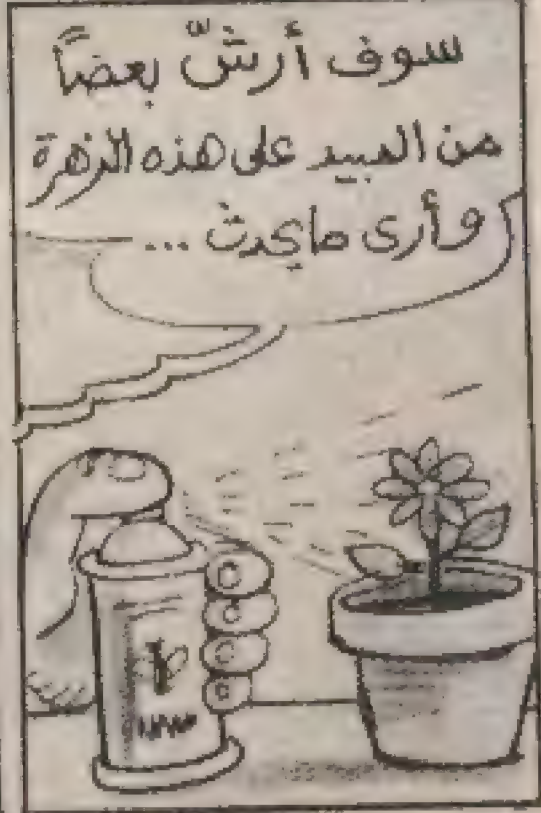 سوف أرشّ بعضاً
من المبيد على هذه الزهرة
وأرى ما يحدث ...